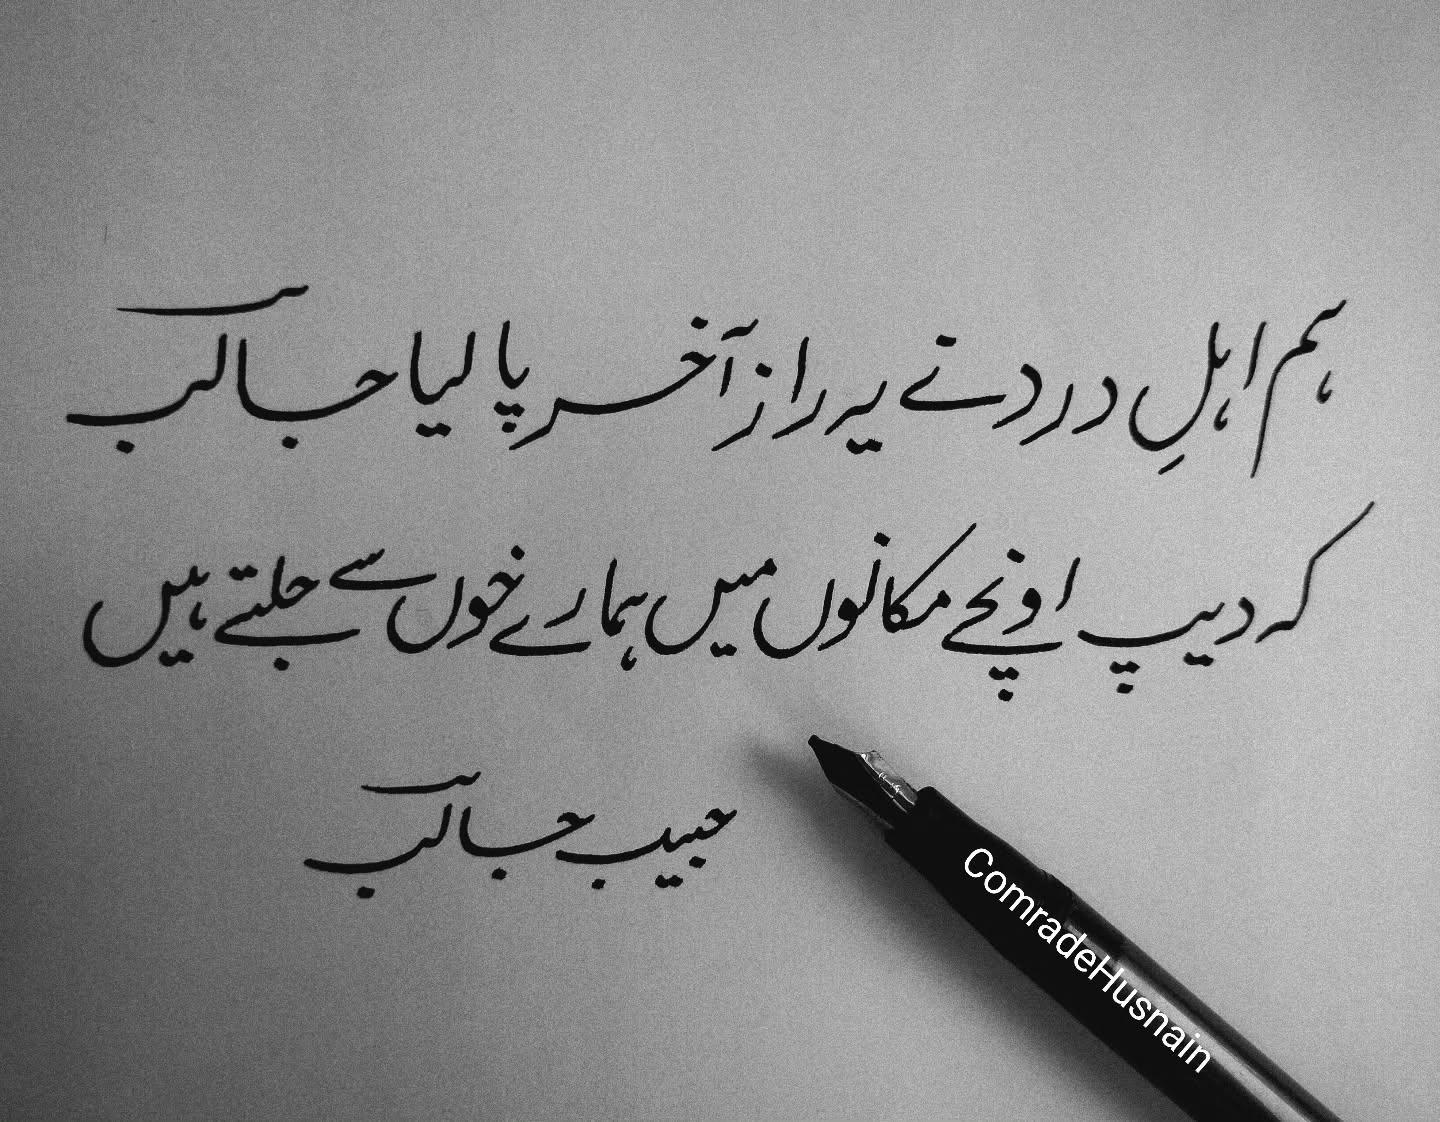 ہم اہلِ درد نے یہ راز آخر پا لیا جالب
کہ دیپ اونچے مکانوں میں ہمارے خوں سے جلتے ہیں
حبیب جالب
ComradeHusnain